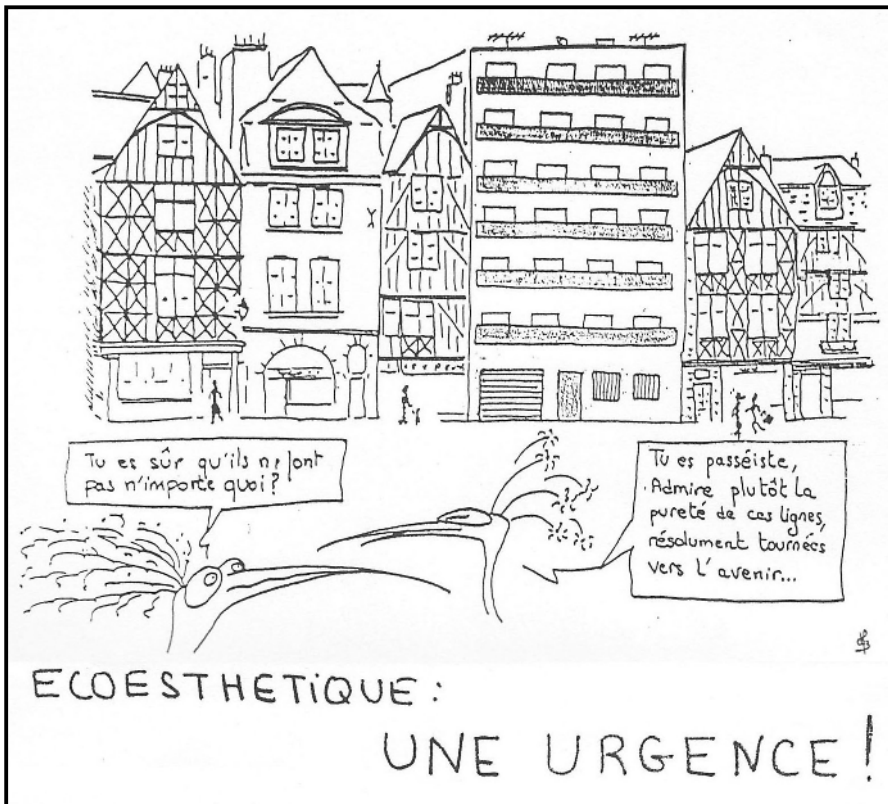 Tu es sûr qu'ils ne font
pas n'importe quoi?
Tu es passéiste,
Admire plutôt la
pureté de ces lignes,
résolument tournées
vers l'avenir...
ECOESTHETIQUE :
UNE URGENCE !